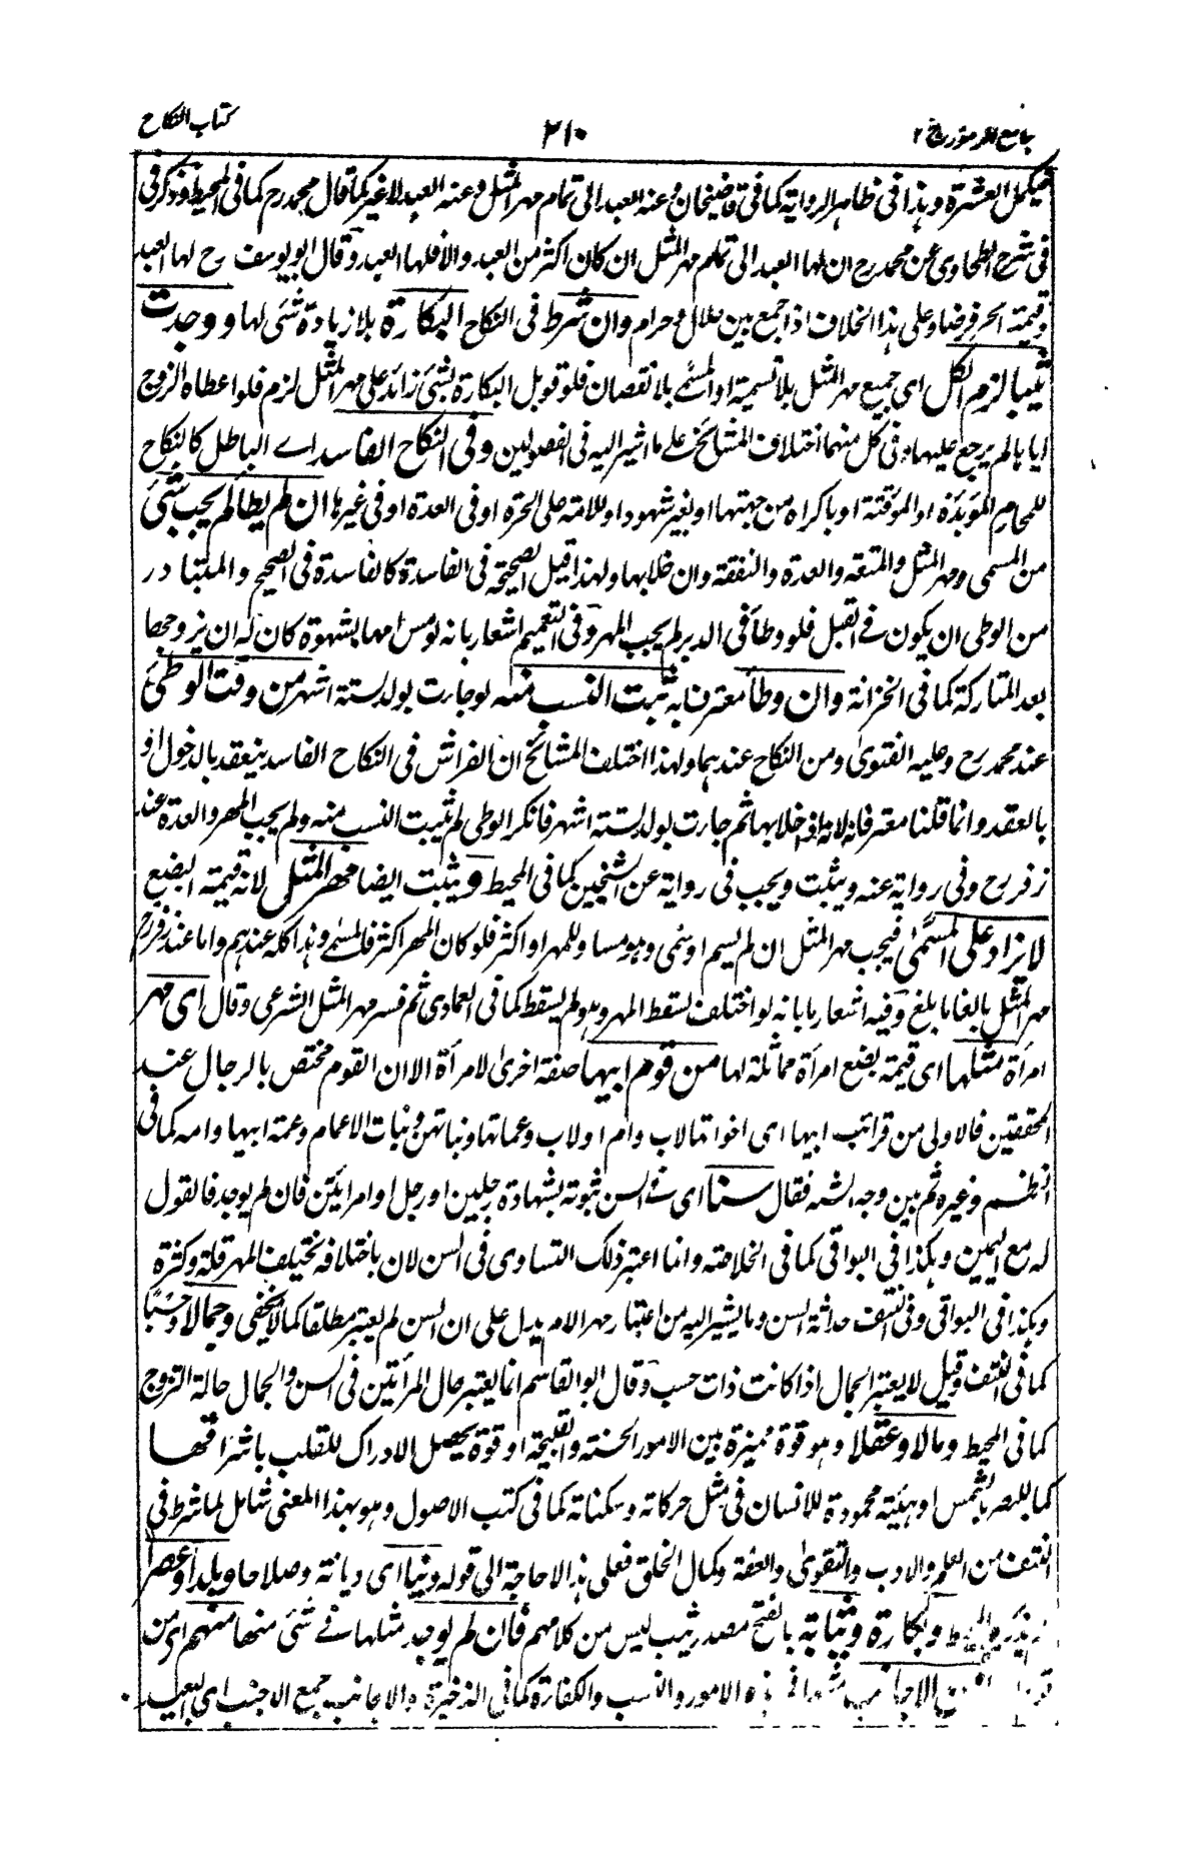 جامع الرموز ج ٢
٢١٠
كتاب النكاح
فيكمل العشرة وهذا في ظاهر الرواية كما في قاضيخان وعنه العبد الى تمام مهر المثل وعنه العبد لا غير كما قال محمد رح كما في المحيط وذكر في
في شرح الطحاوى عن محمد رح ان لها العبد الى تمام مهر المثل ان كان اكثر من العبد والا فلها العبد وقال ابو يوسف رح لها العبد
وقيمة الحر فرضا وعلى هذا الخلاف اذا جمع بين حلال وحرام وان شرط في النكاح البكارة بلا زيادة شئ لها و وجدت
ثيبا لزم الكل اى جميع مهر المثل بلا تسمية او المسمى بلا نقصان فلو قوبل البكارة بشئ زائد على مهر المثل لزم فلو اعطاه الزوج
اياها لم يرجع عليها وفى كل منهما اختلاف المشائخ على ما اشير اليه في الفصولين وفى النكاح الفاسد اے الباطل كالنكاح
للمحارم المؤبدة او المؤقتة او باكراه من جهتها او بغير شهود او للامة على الحرة او في العدة او في غيرها ان لم يطأ لم يجب شئ
من المسمى ومهر المثل والمتعة والعدة والنفقة وان خلا بها ولهذا قيل الصحيحة في الفاسدة كالفاسدة في الصحيح والمتبادر
من الوطى ان يكون فے القبل فلو وطأ فى الدبر لم يجب المهر وفى التعميم اشعار بانه لو مس امها بشهوة كان له ان يزوجها
بعد المتاركة كما فى الخزانة وان وطأ معترفا به ثبت النسب منه لو جارت بولد لستة اشهر من وقت الوطئ
عند محمد رح وعليه الفتوىٰ ومن النكاح عندهما ولهذا اختلف المشائخ ان الفراش فى النكاح الفاسد ينعقد بالدخول او
بالعقد وانما قلنا معترفا لانه لو خلا بها ثم جارت بولد لستة اشهر فانكر الوطى لم يثبت النسب منه ولم يجب المهر والعدة عند
زفر رح وفى رواية عنه ويثبت ويجب فى رواية عن الشيخين كما فى المحيط ويثبت ايضا مهر المثل لانه قيمة البضع
لا يزاد على المسمى فيجب مهر المثل ان لم يسم او سمى وهو مساو للمهر او اكثر فلو كان المهر اكثر فالمسمے وهذا كله عندهم واما عند زفر رح
مهر المثل بالغا ما بلغ وفيه اشعار ما بانه لو اختلف لسقط المهر وهو لم يسقط كما فى العمادى ثم فسر مهر المثل الشرعى وقال اى مهر
امرأة مثلها اى قيمة بضع امرأة مماثلة لها من قوم ابيها صفة اخرىٰ لامرأة الا ان القوم مختص بالرجال عند
المحققين فالاولى من قرائب ابيها اى اخواتها لاب وام او لاب وعماتها وبناتهن وبنات الاعمام وعمة ابيها وامه كما فى
النظم وغيره ثم بين وجه الشبه فقال سنا اى فے السن ثبوته بشهادة رجلين او رجل وامرأتين فان لم يوجد فالقول
له مع اليمين وهكذا في البواقى كما فى الخلاصة وانما اعتبر ذلك التساوى فى السن لان باختلافه يختلف المهر قلة وكثرة
وهكذا فى البواقى وفى النتف حداثة السن وما يشير اليه من اعتبار مهر الام يدل على ان السن لم يعتبر مطلقا كما لا يخفى وجمالا وحسبا
كما فى النتف وقيل لا يعتبر الجمال اذا كانت ذات حسب وقال ابو القاسم انما يعتبر حال المرأتين فى السن والجمال حالة التزوج
كما فى المحيط ومالا وعقلا وهو قوة مميزة بين الامور الحسنة والقبيحة او قوة يحصل الادراك للقلب باشراقها
كما للبصر بالشمس او هيئة محمودة للانسان فى مثل حركاته وسكناته كما فى كتب الاصول وهو بهذا المعنى شامل لما شرط فى
النتف من العلم والادب والتقوىٰ والعفة وكمال الخلق فعلى هذا لا حاجة الى قوله ودينا اى ديانة وصلاحا وبلدا وعصرا
وبكارة وثيابة بالفتح مصدر ثيب ليس من كلامهم فان لم يوجد مثلها فے شئ منها منهم اى من
الاجانب الامور والنسب والكفارة كما فى الذخيرة والاجانب جمع الاجنب اى البعيد